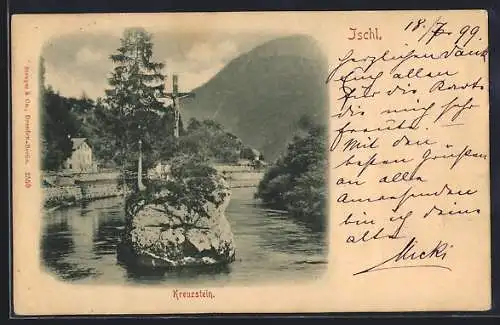 Ischl.
18/7 99.
Herzlichen Dank
Euch allen
für die Karte
die mich sehr
freute. Mit den
besten Grüßen
an alle
Anwesenden
bin ich deine
alte
Micki
Stengel & Co., Dresden-Berlin. 2559
Kreuzstein.